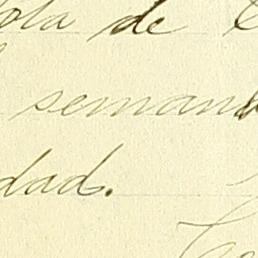 ola de
seman
dad.